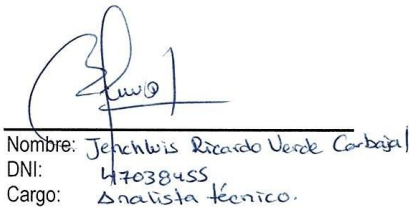 Nombre: Jenchluis Ricardo Verde Carbajal
DNI: 47038455
Cargo: Analista técnico.